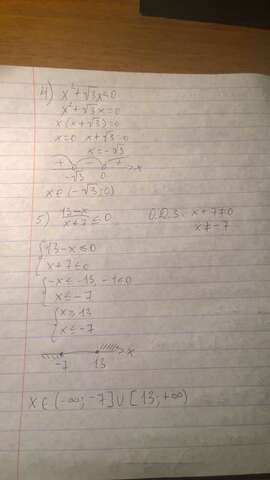 4) x² + √3x < 0
x² + √3x = 0
x(x + √3) = 0
x = 0 x + √3 = 0
x = -√3
+ - + x
-√3 0
x ∈ (-√3; 0)
5) 13-x / x+7 ≤ 0 О.Д.З: x + 7 ≠ 0
x ≠ -7
{ 13 - x ≤ 0
x + 7 ≤ 0
{ -x ≤ -13, -1 ≤ 0
x ≤ -7
{ x ≥ 13
x ≤ -7
x
-7 13
x ∈ (-∞; -7] ∪ [13; +∞)